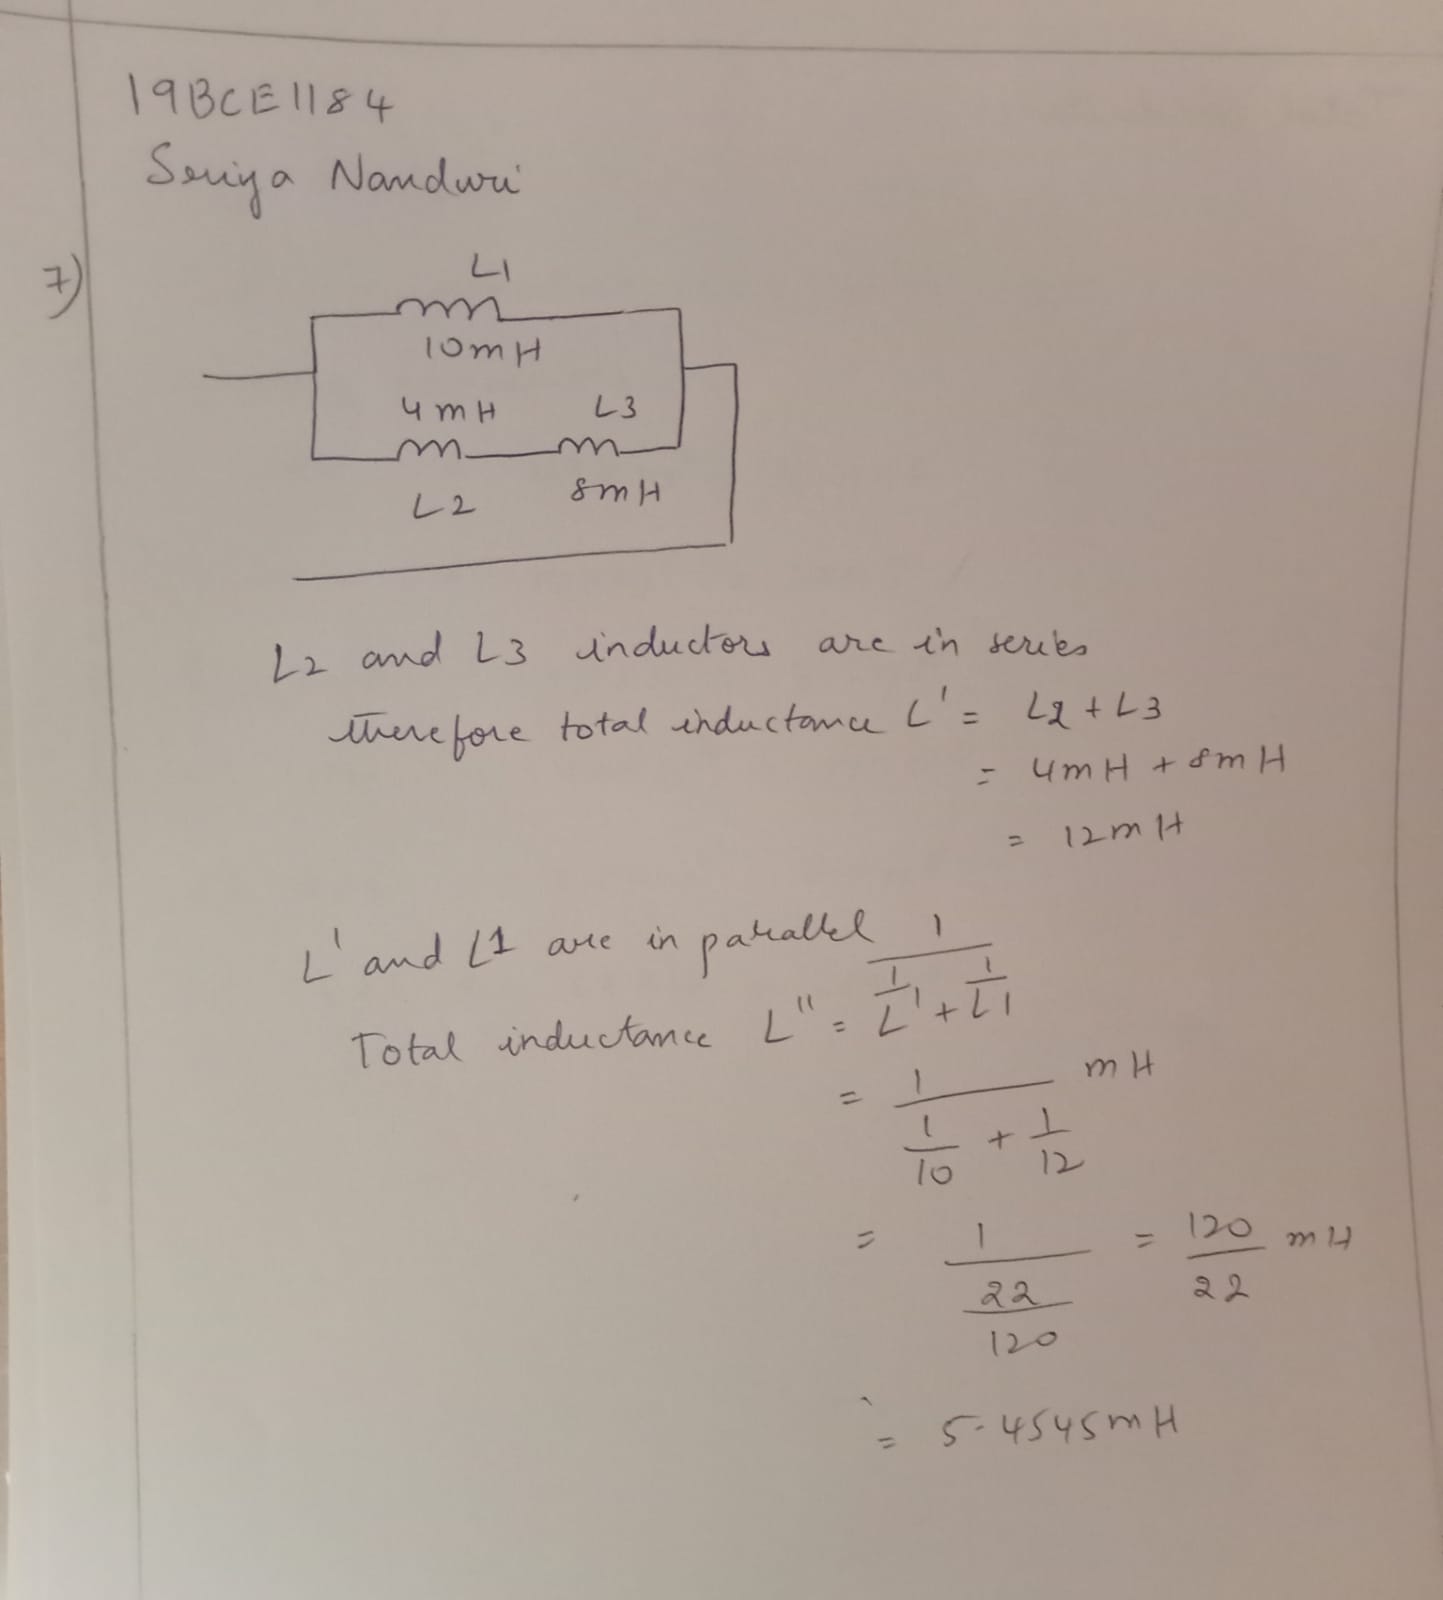 19BCE1184
Seriya Nanduri
7)
L1
10mH
4mH L3
L2 8mH
L2 and L3 inductors are in series
therefore total inductance L' = L2 + L3
= 4mH + 8mH
= 12mH
L' and L1 are in parallel
Total inductance L'' = 1 / (1/L' + 1/L1)
= 1 / (1/10 + 1/12) mH
= 1 / (22/120) = 120/22 mH
= 5.4545mH